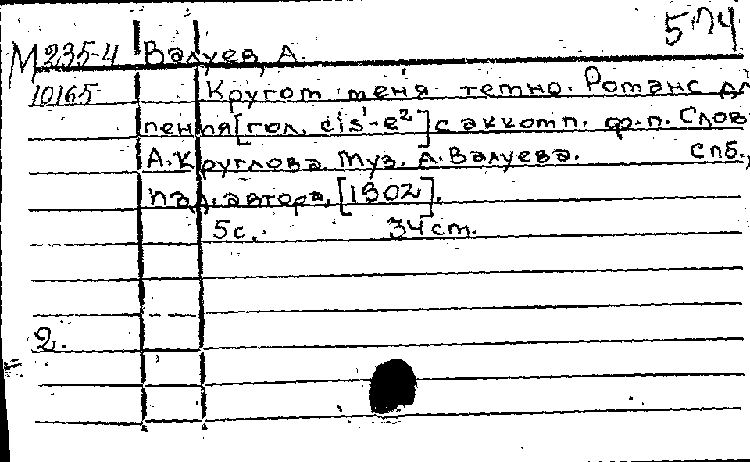 574
М 235-4 Валуев, А.
10165 Кругом меня темно. Романс дл
пения [гол. cis'-e²] с аккомп. ф.п. Слов
А. Круглова. Муз. А. Валуева. СПб.,
изд. автора, [1902].
5 с. 34 cm.
2.